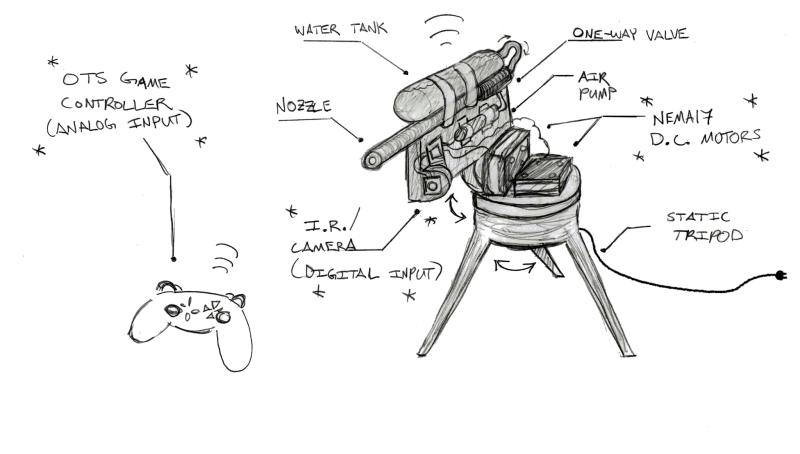 OTS GAME
CONTROLLER
(ANALOG INPUT)
WATER TANK
ONE-WAY VALVE
AIR
PUMP
NOZZLE
NEMA17
D.C. MOTORS
I.R./
CAMERA
(DIGITAL INPUT)
STATIC
TRIPOD